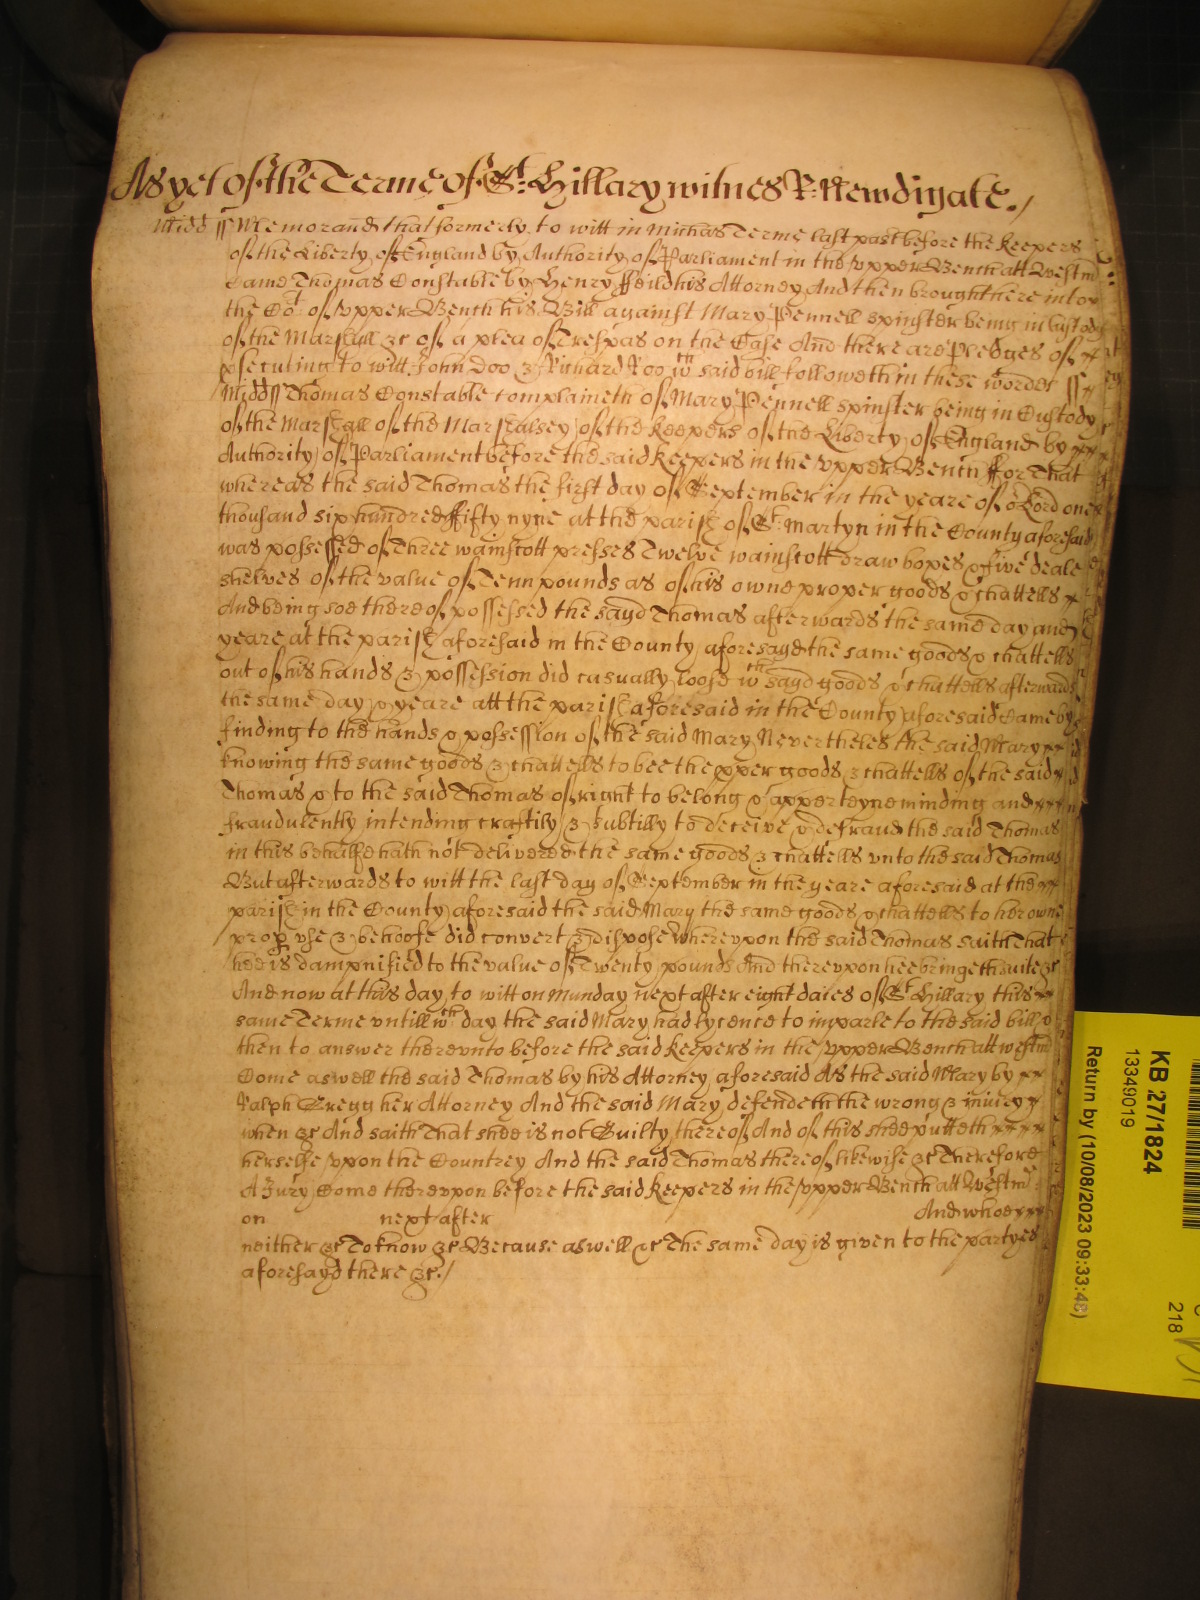 As yet of the Terme of St. Hillary witnes R: Newdigate./
Midd ss Memorand that formerly, to witt in Michas Terme last past before the keepers
of the Liberty of England by Authority of Parliament in the upper Bench att Westm
Came Thomas Constable by Henry ffeild his Attorney And then brought here into
the Cot of upper Bench his Bill against Mary Pennell spinster being in Custody
of the Marshall &c of a plea of Trespas on the Case And there are Pledges of
psecuting to witt John Doo & Richard Roo wth said bill followeth in these wordes ss
Midd ss Thomas Constable complaineth of Mary Pennell spinster being in Custody
of the Marshall of the Marshalsey of the keepers of the Liberty of England by
Authority of Parliament before the said keepers in the upper Bench ffor That
whereas the said Thomas the first day of September in the yeare of o Lord one
thousand six hundred ffifty nyne at the parish of St. Martyn in the County aforesaid
was possessed of Three wainscott presses Twelve wainscott draw boxes & five deale
shelves of the value of Tenn pounds as of his owne proper goods & chattells
And being soe thereof possessed the sayd Thomas afterwards the same day and
yeare at the parish aforesaid in the County aforesayd the same goods & chattells
out of his hands & possession did casually loose wth sayd goods & chattells afterwards
the same day & yeare att the parish aforesaid in the County aforesaid Came by
finding to the hands & possession of the said Mary Nevertheles the said Mary
knowing the same goods & chattells to bee the pper goods & chattells of the said
Thomas & to the said Thomas of right to belong & apperteyne minding and
fraudulently intending craftily & subtilly to deceive & defraud the said Thomas
in this behalfe hath not delivered the same goods & chattells unto the said Thomas
But afterwards to witt the last day of September in the yeare aforesaid at the
parish in the County aforesaid the said Mary the same goods & chattells to her owne
prop use & behoofe did convert & dispose Whereupon the said Thomas saith That
hee is dampnified to the value of Twenty pounds And thereupon hee bringeth suite &c
And now at this day, to witt on Munday next after eight daies of St Hillary this
same Terme untill wch day the said Mary had lycence to imparle to the said bill &
then to answer thereunto before the said keepers in the upper Bench att westm
Come aswell the said Thomas by his Attorney aforesaid As the said Mary by
Ralph Gregg her Attorney And the said Mary defendeth the wrong & iniury
when &c And saith That shee is not Guilty thereof And of this shee putteth
herselfe upon the Countrey And the said Thomas thereof likewise &c Therefore
A Jury Come thereupon before the said keepers in the upper Bench att Westm
on next after And whoe
neither &c To know &c Because aswell &c The same day is given to the partyes
aforesayd there &c./
KB 27/1824
13349019
Return by (10/08/2023 09:33:48)
218